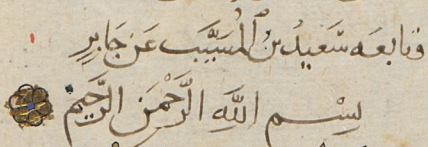 وتابعه سَعِيدُ بْنُ الْمُسَيَّبِ عَنْ جَابِرٍ
بِسْمِ اللَّهِ الرَّحْمَنِ الرَّحِيمِ